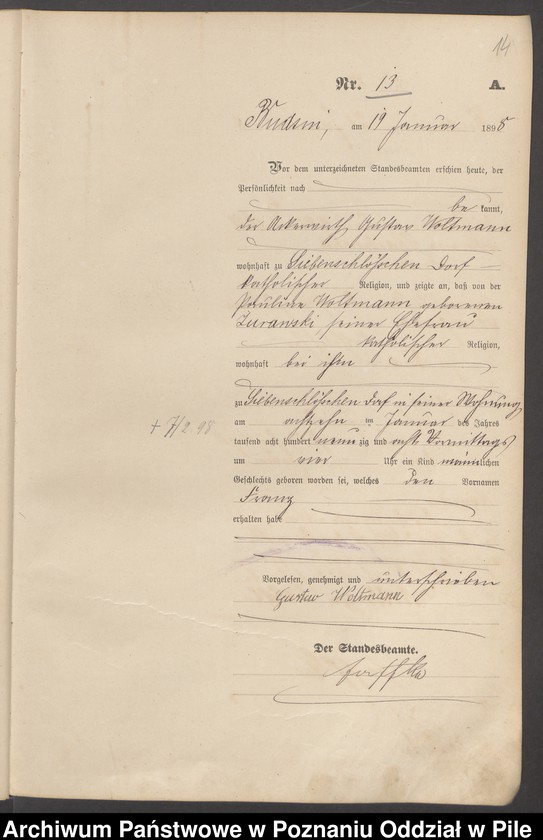 14
Nr. 13 A.
am 19 Januar 1898
Vor dem unterzeichneten Standesbeamten erschien heute, der
Persönlichkeit nach
be kannt,
der Ackerwirth Gustav Woltmann
wohnhaft zu Siebenschlößchen Dorf
katholischer Religion, und zeigte an, daß von der
Pauline Woltmann geborenen
Zuranski seiner Ehefrau
katholischer Religion,
wohnhaft bei ihm
zu Siebenschlößchen Dorf in seiner Wohnung
am achzehn ten Januar des Jahres
tausend acht hundert neun zig und acht Vormittags
um vier Uhr ein Kind männlichen
Geschlechts geboren worden sei, welches den Vornamen
Franz
erhalten habe
+ 7/2 98
Vorgelesen, genehmigt und unterschrieben
Gustav Woltmann
Der Standesbeamte.
Archiwum Państwowe w Poznaniu Oddział w Pile